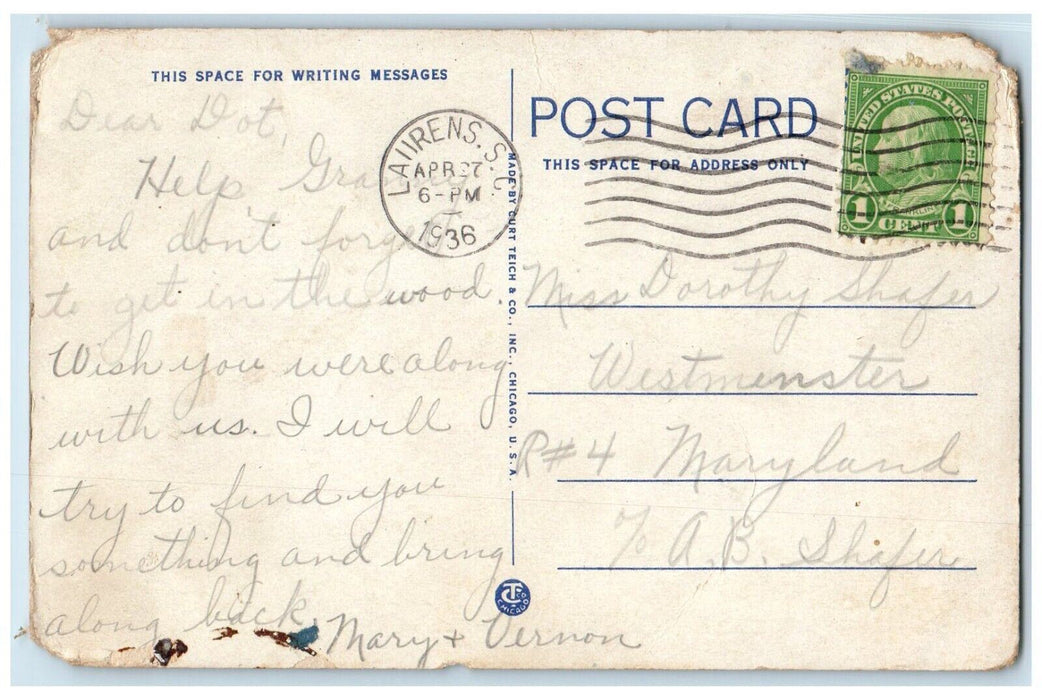 THIS SPACE FOR WRITING MESSAGES
Dear Dot,
Help Gra
and don't forget
to get in the wood.
Wish you were along
with us. I will
try to find you
something and bring
along back.
Mary + Vernon
LAURENS, S.C.
APR 27
6-PM
1936
MADE BY CURT TEICH & CO., INC., CHICAGO, U.S.A.
C.T. & CO.
CHICAGO
POST CARD
THIS SPACE FOR ADDRESS ONLY
UNITED STATES POSTAGE
FRANKLIN
1 CENT 1
Miss Dorothy Shafer
Westmenster
R#4 Maryland
c/o A. B. Shafer